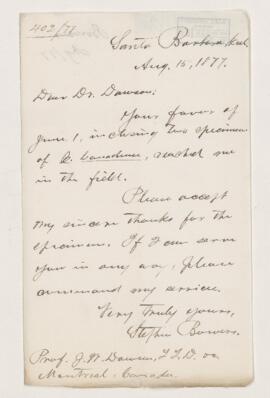 402/77
Santa Barbara, Cal.,
Aug. 15, 1877.
Dear Dr. Dawson:
Your favor of
June 1, inclosing two specimen
of E. Canadense, reached me
in the field.
Please accept
my sincere thanks for the
specimen. If I can serve
you in any way, please
command my service.
Very Truly Yours,
Stephen Bowers.
Prof. J. W. Dawson, LL.D.
Montreal, Canada.